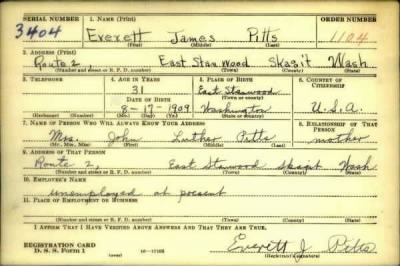 SERIAL NUMBER 1. NAME (Print) ORDER NUMBER
3404 Everett James Pitts 1104
(First) (Middle) (Last)
2. ADDRESS (Print)
Route 2, East Stanwood Skagit Wash
(Number and street or R. F. D. number) (Town) (County) (State)
3. TELEPHONE 4. AGE IN YEARS 5. PLACE OF BIRTH 6. COUNTRY OF CITIZENSHIP
31 East Stanwood
DATE OF BIRTH (Town or county)
8-17-1909 Washington U.S.A.
(Exchange) (Number) (Mo.) (Day) (Yr.) (State or country)
7. NAME OF PERSON WHO WILL ALWAYS KNOW YOUR ADDRESS 8. RELATIONSHIP OF THAT PERSON
Mrs. John Luther Pitts mother
(Mr., Mrs., Miss) (First) (Middle) (Last)
9. ADDRESS OF THAT PERSON
Route 2, East Stanwood Skagit Wash
(Number and street or R. F. D. number) (Town) (County) (State)
10. EMPLOYER'S NAME
unemployed at present
11. PLACE OF EMPLOYMENT OR BUSINESS
(Number and street or R. F. D. number) (Town) (County) (State)
I AFFIRM THAT I HAVE VERIFIED ABOVE ANSWERS AND THAT THEY ARE TRUE.
REGISTRATION CARD
D. S. S. Form 1 Everett J Pitts
(Registrant's signature)